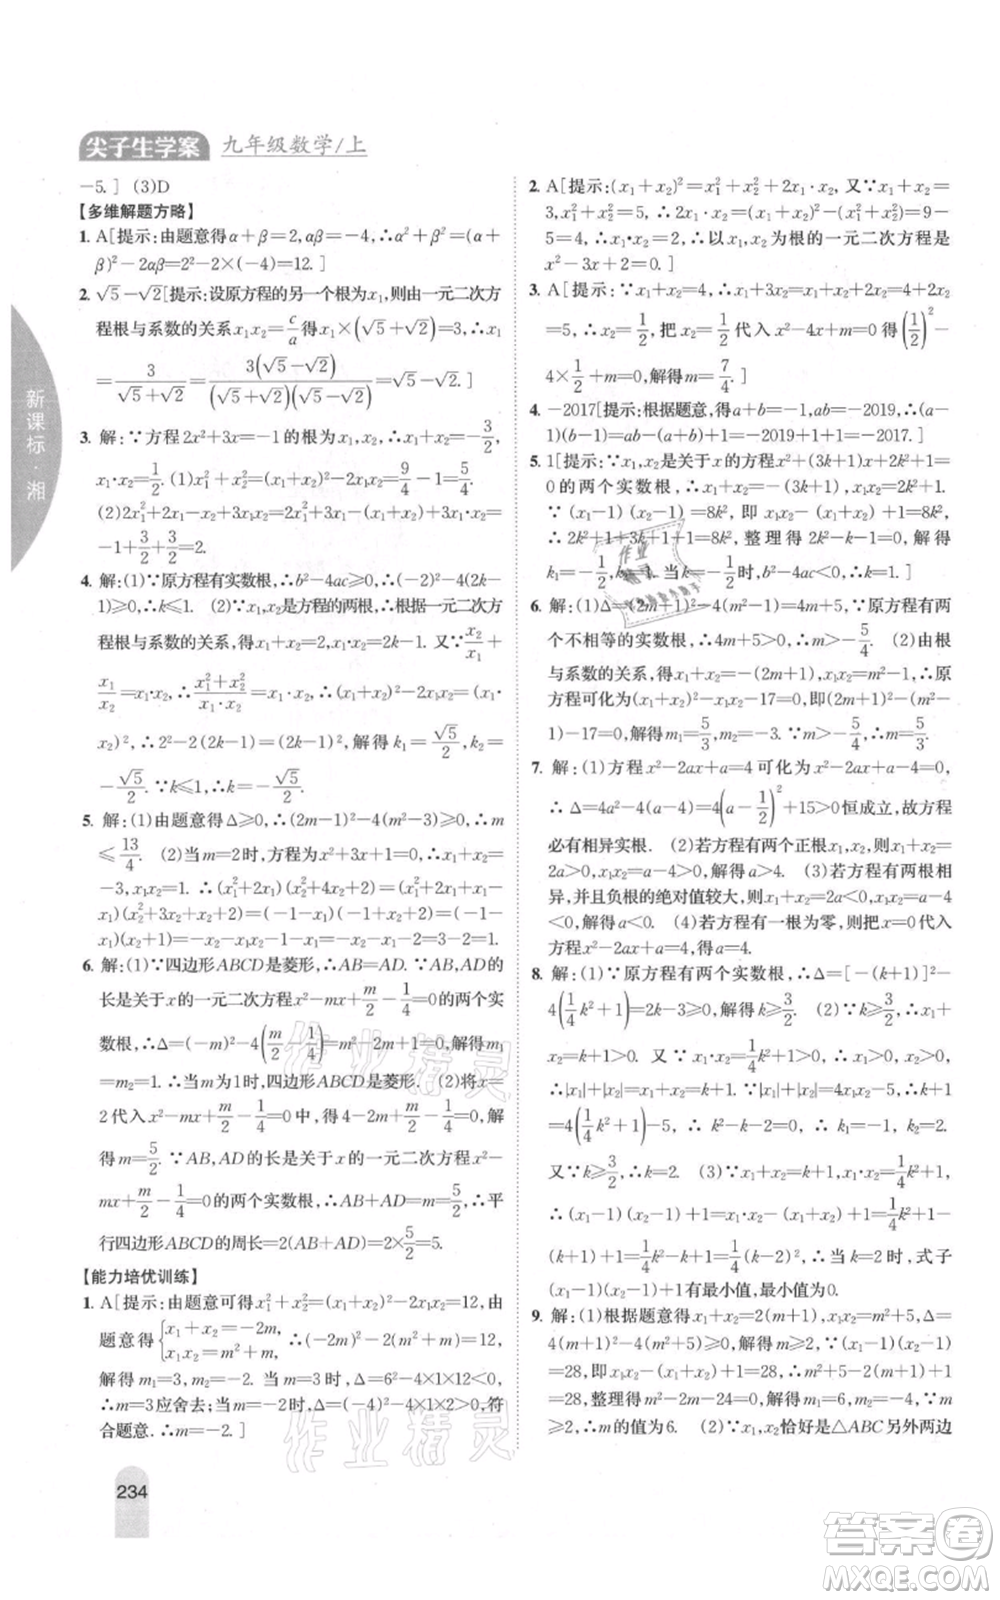 尖子生学案 九年级数学/上
新课标·湘
-5.] (3)D
【多维解题方略】
1. A[提示:由题意得α+β=2,αβ=-4,∴α²+β²=(α+
β)²-2αβ=2²-2×(-4)=12.]
2. √5-√2[提示:设原方程的另一个根为x₁,则由一元二次方
程根与系数的关系x₁x₂=c/a得x₁×(√5+√2)=3,∴x₁
=3/(√5+√2)=3(√5-√2)/((√5+√2)(√5-√2))=√5-√2.]
3. 解:∵方程2x²+3x=-1的根为x₁,x₂,∴x₁+x₂=-3/2,
x₁·x₂=1/2. (1)x₁²+x₂²=(x₁+x₂)²-2x₁x₂=9/4-1=5/4.
(2)2x₁²+2x₁-x₂=(2x₁²+3x₁)-(x₁+x₂)=
-1+3/2+3/2=2.
4. 解:(1)∵原方程有实数根,∴b²-4ac≥0,∴(-2)²-4(2k-
1)≥0,∴k≤1. (2)∵x₁,x₂是方程的两根,∴根据一元二次
方程根与系数的关系,得x₁+x₂=2,x₁·x₂=2k-1.又∵x₂/x₁+
x₁/x₂=x₁·x₂,∴(x₁²+x₂²)/(x₁·x₂)=x₁·x₂,∴(x₁+x₂)²-2x₁x₂=(x₁·
x₂)²,∴2²-2(2k-1)=(2k-1)²,解得k₁=√5/2,k₂=
-√5/2.∵k≤1,∴k=-√5/2.
5. 解:(1)由题意得Δ≥0,∴(2m-1)²-4(m²-3)≥0,∴m
≤13/4. (2)当m=2时,方程为x²+3x+1=0,∴x₁+x₂=
-3,x₁x₂=1.∴(x₁²+2x₁)(x₂²+4x₂+2)=(x₁²+2x₁+x₁-
x₁)(x₂²+3x₂+x₂+2)=(-1-x₁)(-1+x₂+2)=(-1-
x₁)(x₂+1)=-x₂-x₁x₂-1-x₁=-x₂-x₁-2=3-2=1.
6. 解:(1)∵四边形ABCD是菱形,∴AB=AD.∵AB,AD的
长是关于x的一元二次方程x²-mx+m/2-1/4=0的两个实
数根,∴Δ=(-m)²-4(m/2-1/4)=(m-1)²=0,解得m
=1.∴当m为1时,四边形ABCD是菱形. (2)将x=
2代入x²-mx+m/2-1/4=0中,得4-2m+m/2-1/4=0,解
得m=5/2.∵AB,AD的长是关于x的一元二次方程x²-
mx+m/2-1/4=0的两个实数根,∴AB+AD=m=5/2,∴平
行四边形ABCD的周长=2(AB+AD)=2×5/2=5.
【能力培优训练】
1. A[提示:由题意可得x₁²+x₂²=(x₁+x₂)²-2x₁x₂=12,由
题意得{x₁+x₂=-2m, x₁x₂=m²+m, ∴(-2m)²-2(m²+m)=12,
解得m₁=3,m₂=-2.当m=3时,Δ=6²-4×1×12<0,
∴m=3应舍去;当m=-2时,Δ=(-4)²-4×1×2>0,符
合题意.∴m=-2.]
234
2. A[提示:(x₁+x₂)²=x₁²+x₂²+2x₁x₂,又∵x₁+x₂=
3,x₁²+x₂²=5,∴2x₁x₂=(x₁+x₂)²-(x₁²+x₂²)=9-
5=4,∴x₁x₂=2,∴以x₁,x₂为根的一元二次方程是
x²-3x+2=0.]
3. A[提示:∵x₁+x₂=4,∴x₁+3x₂=x₁+x₂+2x₂=4+2x₂
=5,∴x₂=1/2,把x₂=1/2代入x²-4x+m=0得(1/2)²-
4×1/2+m=0,解得m=7/4.]
4. -2017[提示:根据题意,得a+b=-1,ab=-2019,∴(a-
1)(b-1)=ab-(a+b)+1=-2019+1+1=-2017.]
5. 1[提示:∵x₁,x₂是关于x的方程x²+(3k+1)x+2k²+1=
0的两个实数根,∴x₁+x₂=-(3k+1),x₁x₂=2k²+1.
∵(x₁-1)(x₂-1)=8k²,即x₁x₂-(x₁+x₂)+1=8k²,∴
2k²+1+3k+1+1=8k²,整理,得2k²-k-1=0,解得
k₁=-1/2,k₂=1.当k=-1/2时,b²-4ac<0,∴k=1.]
6. 解:(1)Δ=(2m+1)²-4(m²-1)=4m+5,∵原方程有两
个不相等的实数根,∴4m+5>0,∴m>-5/4. (2)由根
与系数的关系,得x₁+x₂=-(2m+1),x₁x₂=m²-1,∴原
方程可化为(x₁+x₂)²-x₁x₂-17=0,即(2m+1)²-(m²-
1)-17=0,解得m₁=5/3,m₂=-3.∵m>-5/4,∴m=5/3.
7. 解:(1)方程x²-2ax+a=4可化为x²-2ax+a-4=0,
∴Δ=4a²-4(a-4)=4(a-1/2)²+15>0恒成立,故方程
必有相异实根. (2)若方程有两个正根x₁,x₂,则x₁+x₂=
2a>0,x₁x₂=a-4>0,解得a>4. (3)若方程有两根相
异,并且负根的绝对值较大,则x₁+x₂=2a<0,x₁x₂=a-4
<0,解得a<0. (4)若方程有一根为零,则把x=0代入
方程x²-2ax+a=4,得a=4.
8. 解:(1)∵原方程有两个实数根,∴Δ=[-(k+1)]²-
4(1/4k²+1)=2k-3≥0,解得k≥3/2. (2)∵k≥3/2,∴x₁+
x₂=k+1>0.又∵x₁·x₂=1/4k²+1>0,∴x₁>0,x₂>0,
∴|x₁|+|x₂|=x₁+x₂=k+1.∵|x₁|+|x₂|=4x₁x₂-5,∴k+1
=4(1/4k²+1)-5,∴k²-k-2=0,∴k₁=-1,k₂=2.
又∵k≥3/2,∴k=2. (3)∵x₁+x₂=k+1,x₁·x₂=1/4k²+1,
∴(x₁-1)(x₂-1)=x₁·x₂-(x₁+x₂)+1=1/4k²+1-
(k+1)+1=1/4k²-k+1=1/4(k-2)²,∴当k=2时,式子
(x₁-1)(x₂-1)有最小值,最小值为0.
9. 解:(1)根据题意得x₁+x₂=2(m+1),x₁x₂=m²+5,Δ=
4(m+1)²-4(m²+5)≥0,解得m≥2,∵(x₁-1)(x₂-1)
=28,即x₁x₂-(x₁+x₂)+1=28,∴m²+5-2(m+1)+1
=28,整理得m²-2m-24=0,解得m₁=6,m₂=-4,∵m
≥2,∴m的值为6. (2)∵x₁,x₂恰好是△ABC另外两边
作业精灵
作业精灵
作业精灵
答案卷
MXQE.COM